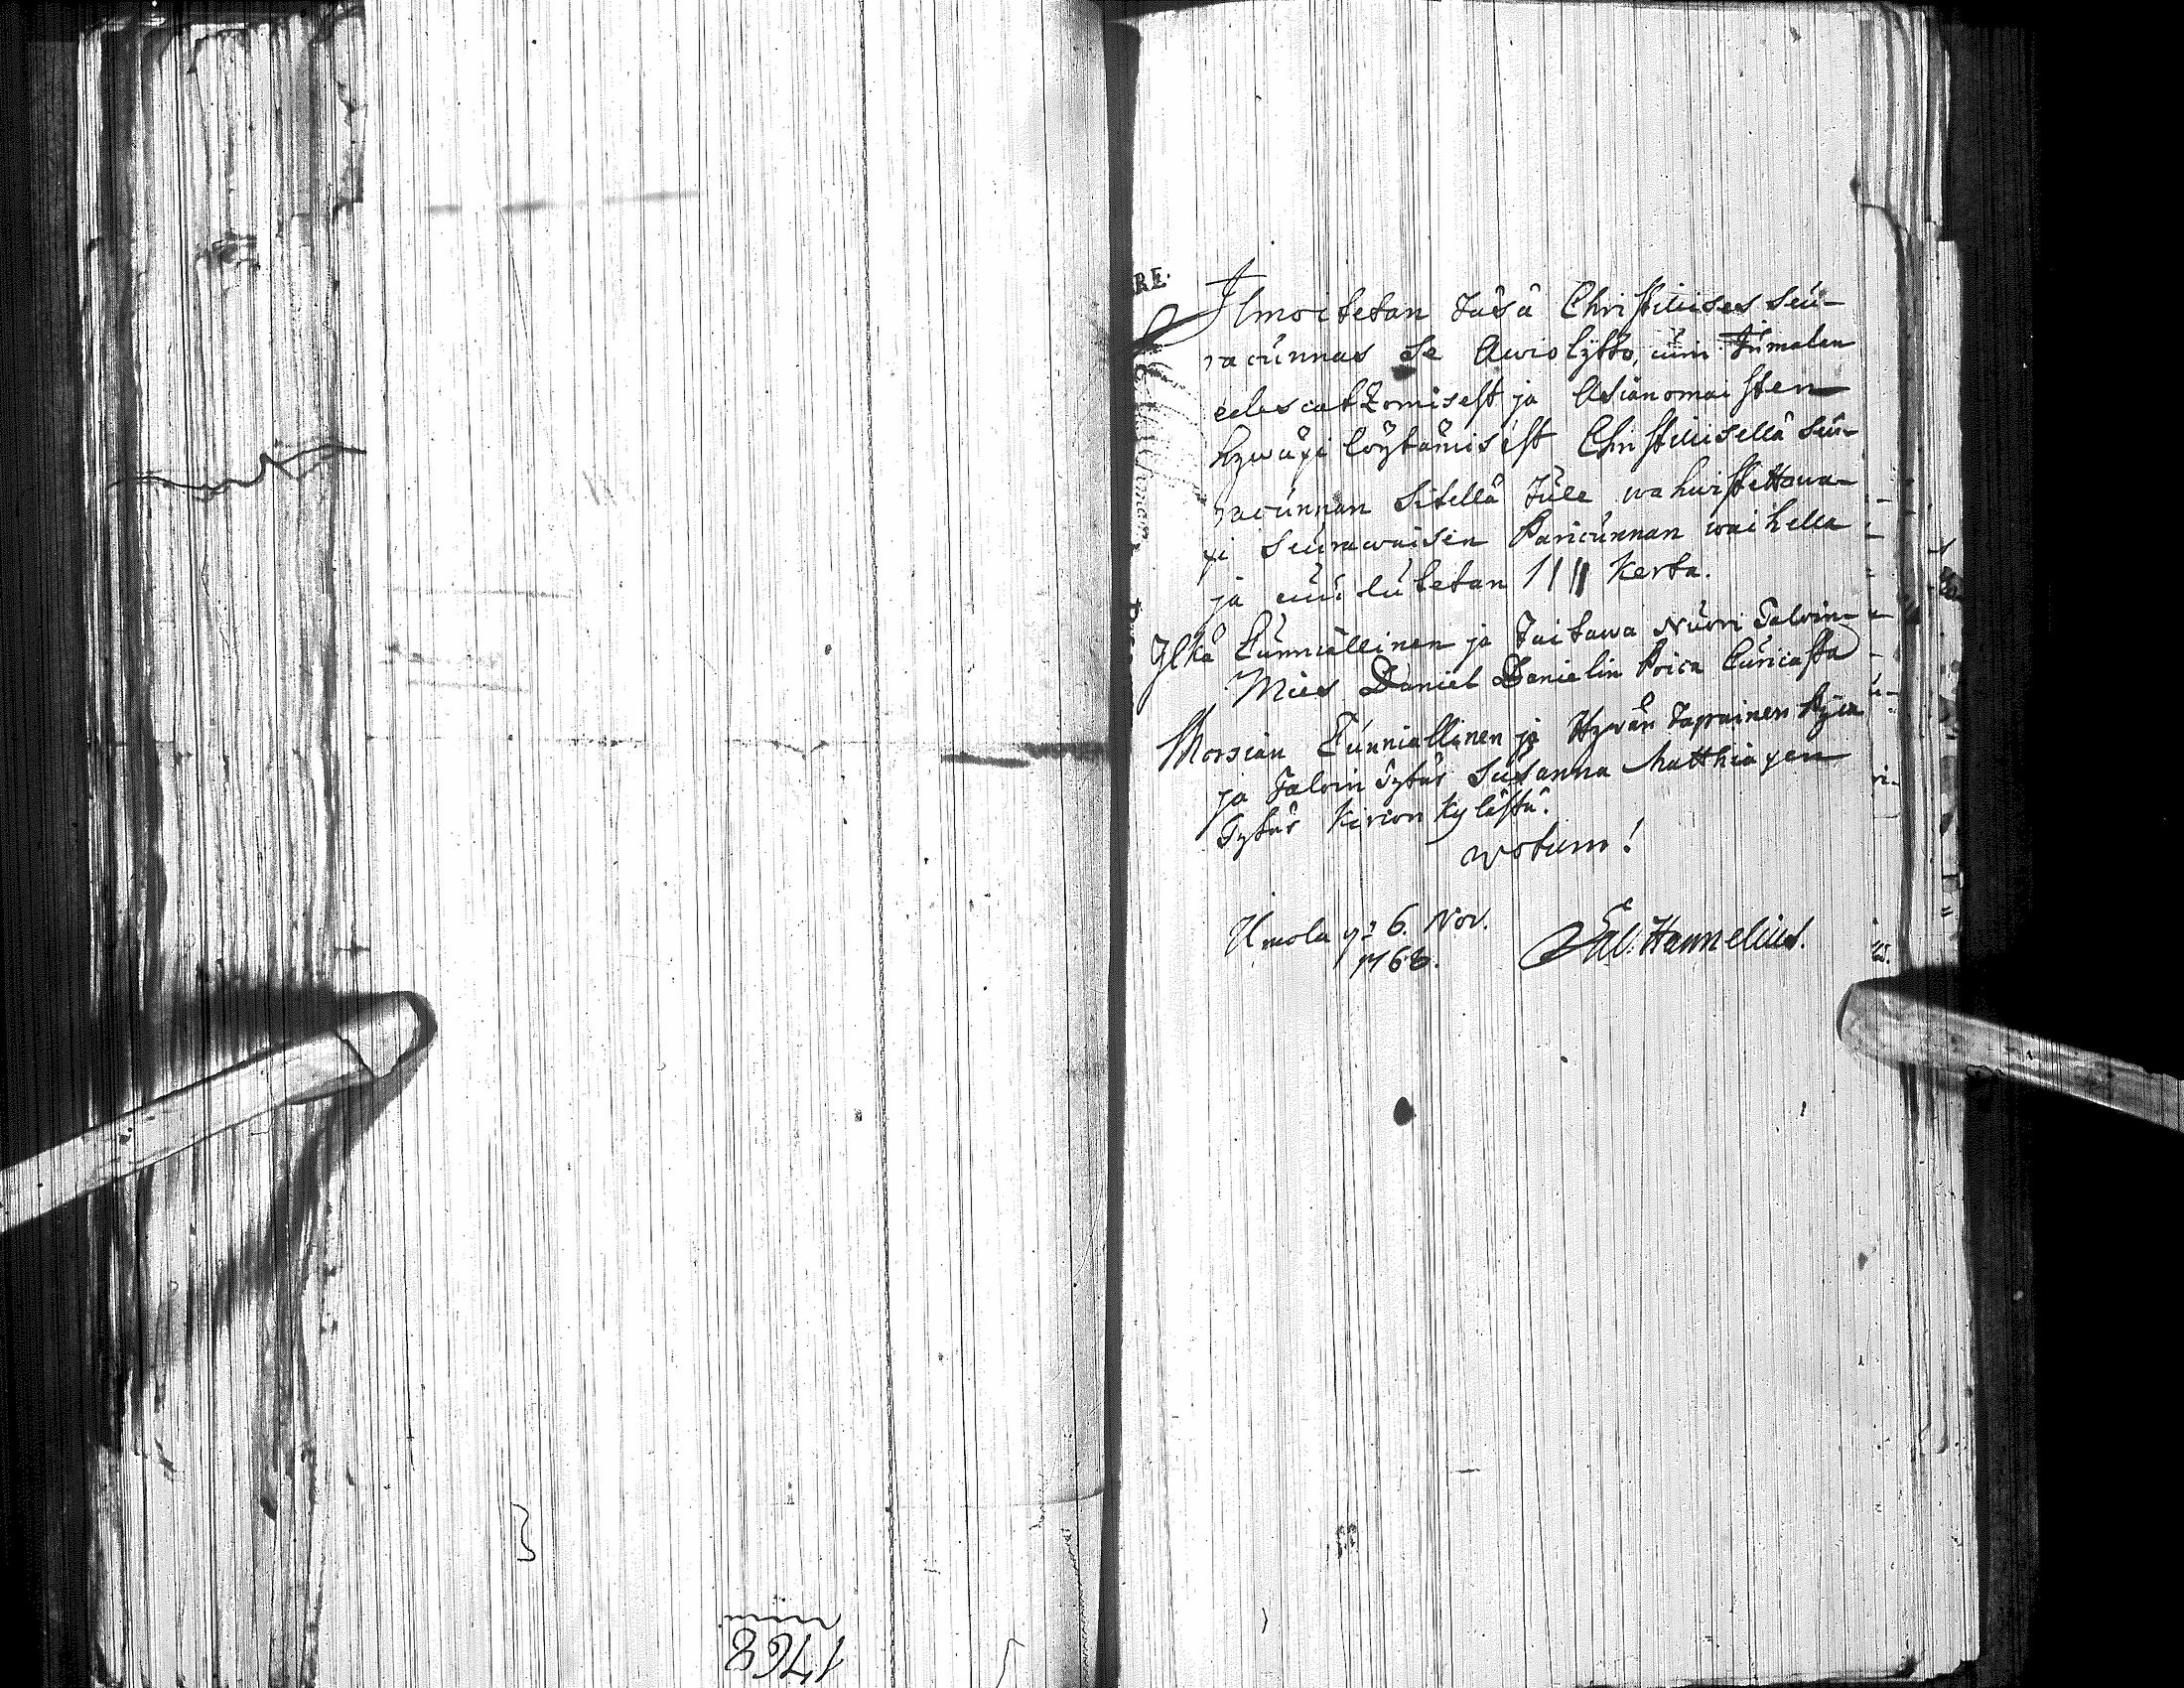 RE.
Ilmoitetan täsä Christilises seu-
racunnas se Awiolijtto, cuin Jumalan
edescatzomisest ja Asianomaisten
hywäxi löytämisest Christilisellä seu-
racunnan sitellä Tule wahwistettawa-
xi seurawaisen Paricunnan waihella
ja cuulutetan 1 kerta.
Ylkä Cunniallinen ja Taitawa Nuori Talvin-
Mies Daniel Danielin Poica
Morsian Cunniallinen ja Hywän Tapainen Pijca
ja Talvin Tytär Susanna Matthiaxen
Tytär Kircon Kylästä.
votum!
Umola 6. Nov.
1768. Hannelius.
1768